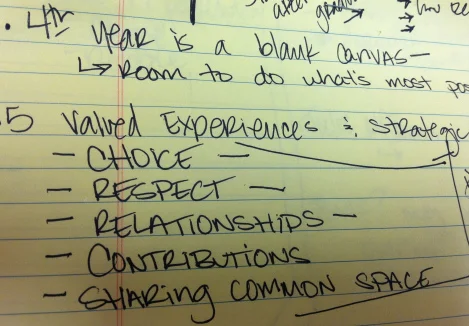 after
→ how
. 4th year is a blank canvas—
↳ Room to do what's most
5 Valued Experiences & strategic
— CHOICE —
— RESPECT —
— RELATIONSHIPS —
— CONTRIBUTIONS
— SHARING COMMON SPACE